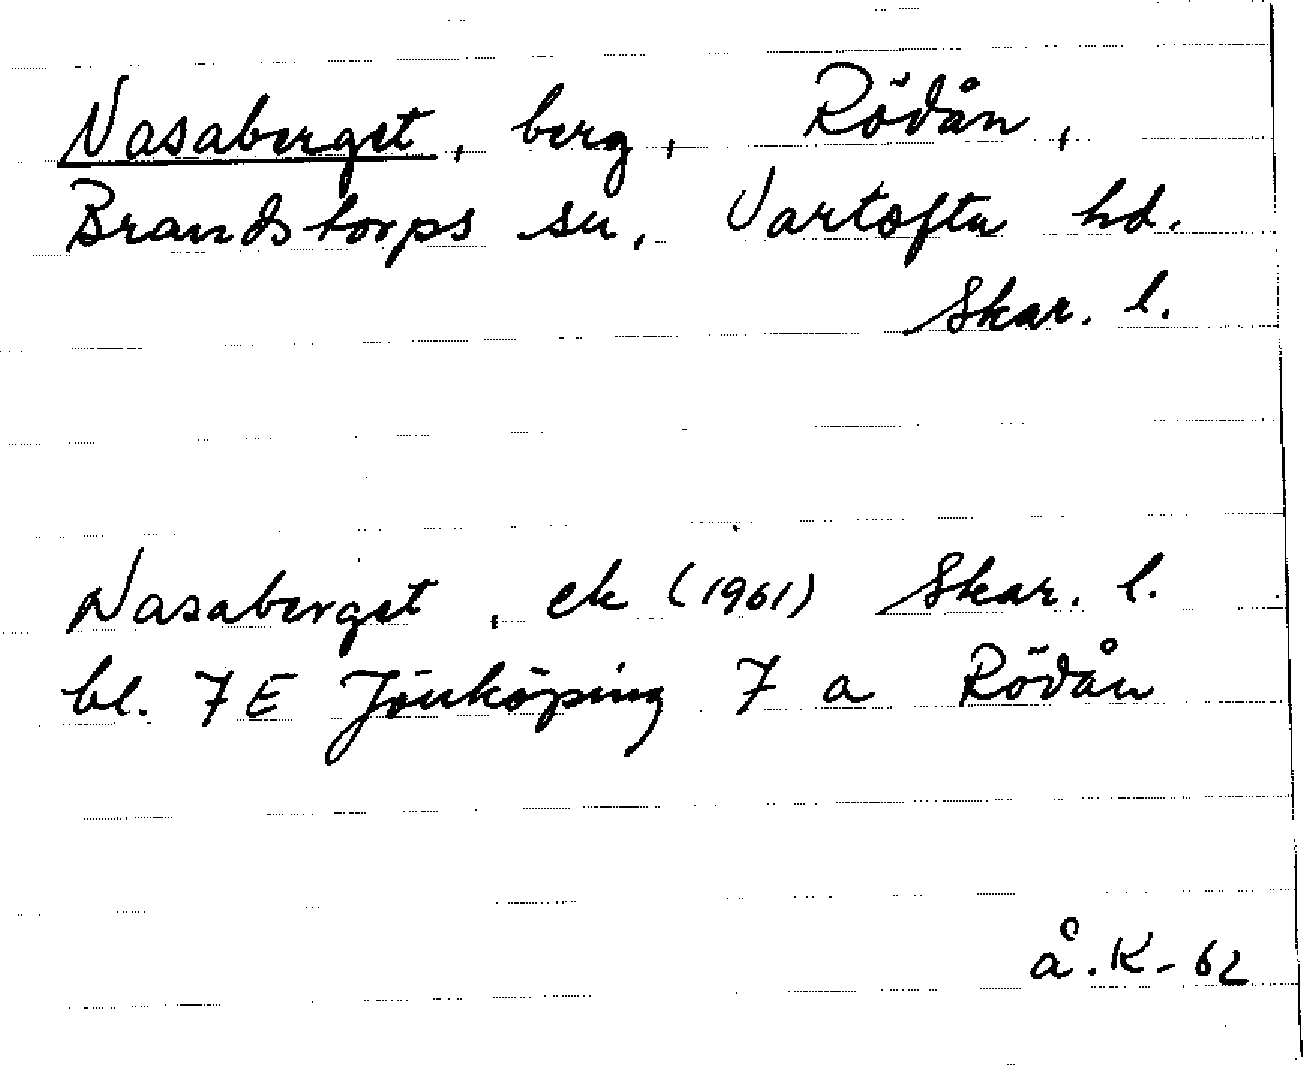 Nasaberget, berg, Rödån,
Brandstorps sn, Vartofta hd.
Skar. l.
Nasaberget, ek (1961) Skar. l.
bl. 7 E Jönköping 7 a Rödån
å.K-62